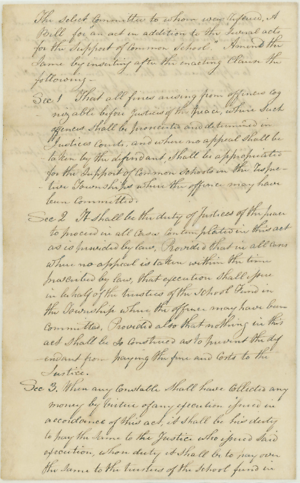 The Select Committee to whom was refered, A
Bill for an act in addition to the several acts
for the Support of Common School" Amend the
Same by inserting after the enacting Clause the
following—
Sec. 1 That all fines arising from offences cog
nizable before Justices of the Peace, where such
offences shall be prosecuted and determined in
Justices Courts, and where no appeal shall be
taken by the defendant, Shall be appropriated
for the Support of Common Schools in the respec
tive Townships where the offence may have
been committed.
Sec 2 It shall be the duty of Justices of the peace
to proceed in all cases contemplated in this act
as is provided by law, Provided that in all cases
where no appeal is taken within the time
prescribed by law, that execution shall issue
in behalf of the trustees of the School fund in
the Township where the offence may have been
Committed, Provided also that nothing in this
act shall be so construed as to prevent the def
endant from paying the fine and costs to the
Justice.
Sec 3. When any Constable Shall have Collected any
money by Virtue of any execution issued in
accordance of this act, it shall be his duty
to pay the Same to the Justice who issued said
execution, whose duty it shall be to pay over
the Same to the trustees of the School fund in